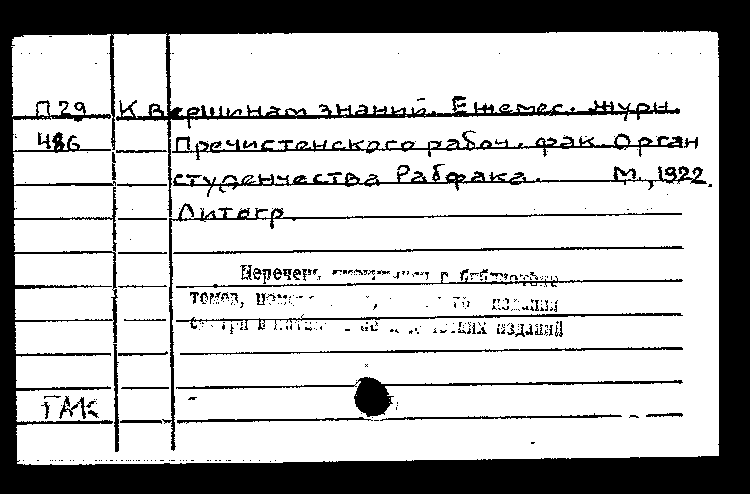 П29 К вершинам знаний. Ежемес. журн.
486 Пречистенского рабоч. фак. Орган
студенчества Рабфака. М., 1922.
Литогр.
Перечень в библиотеке
томов, издания
смотри в изданий
ГАК